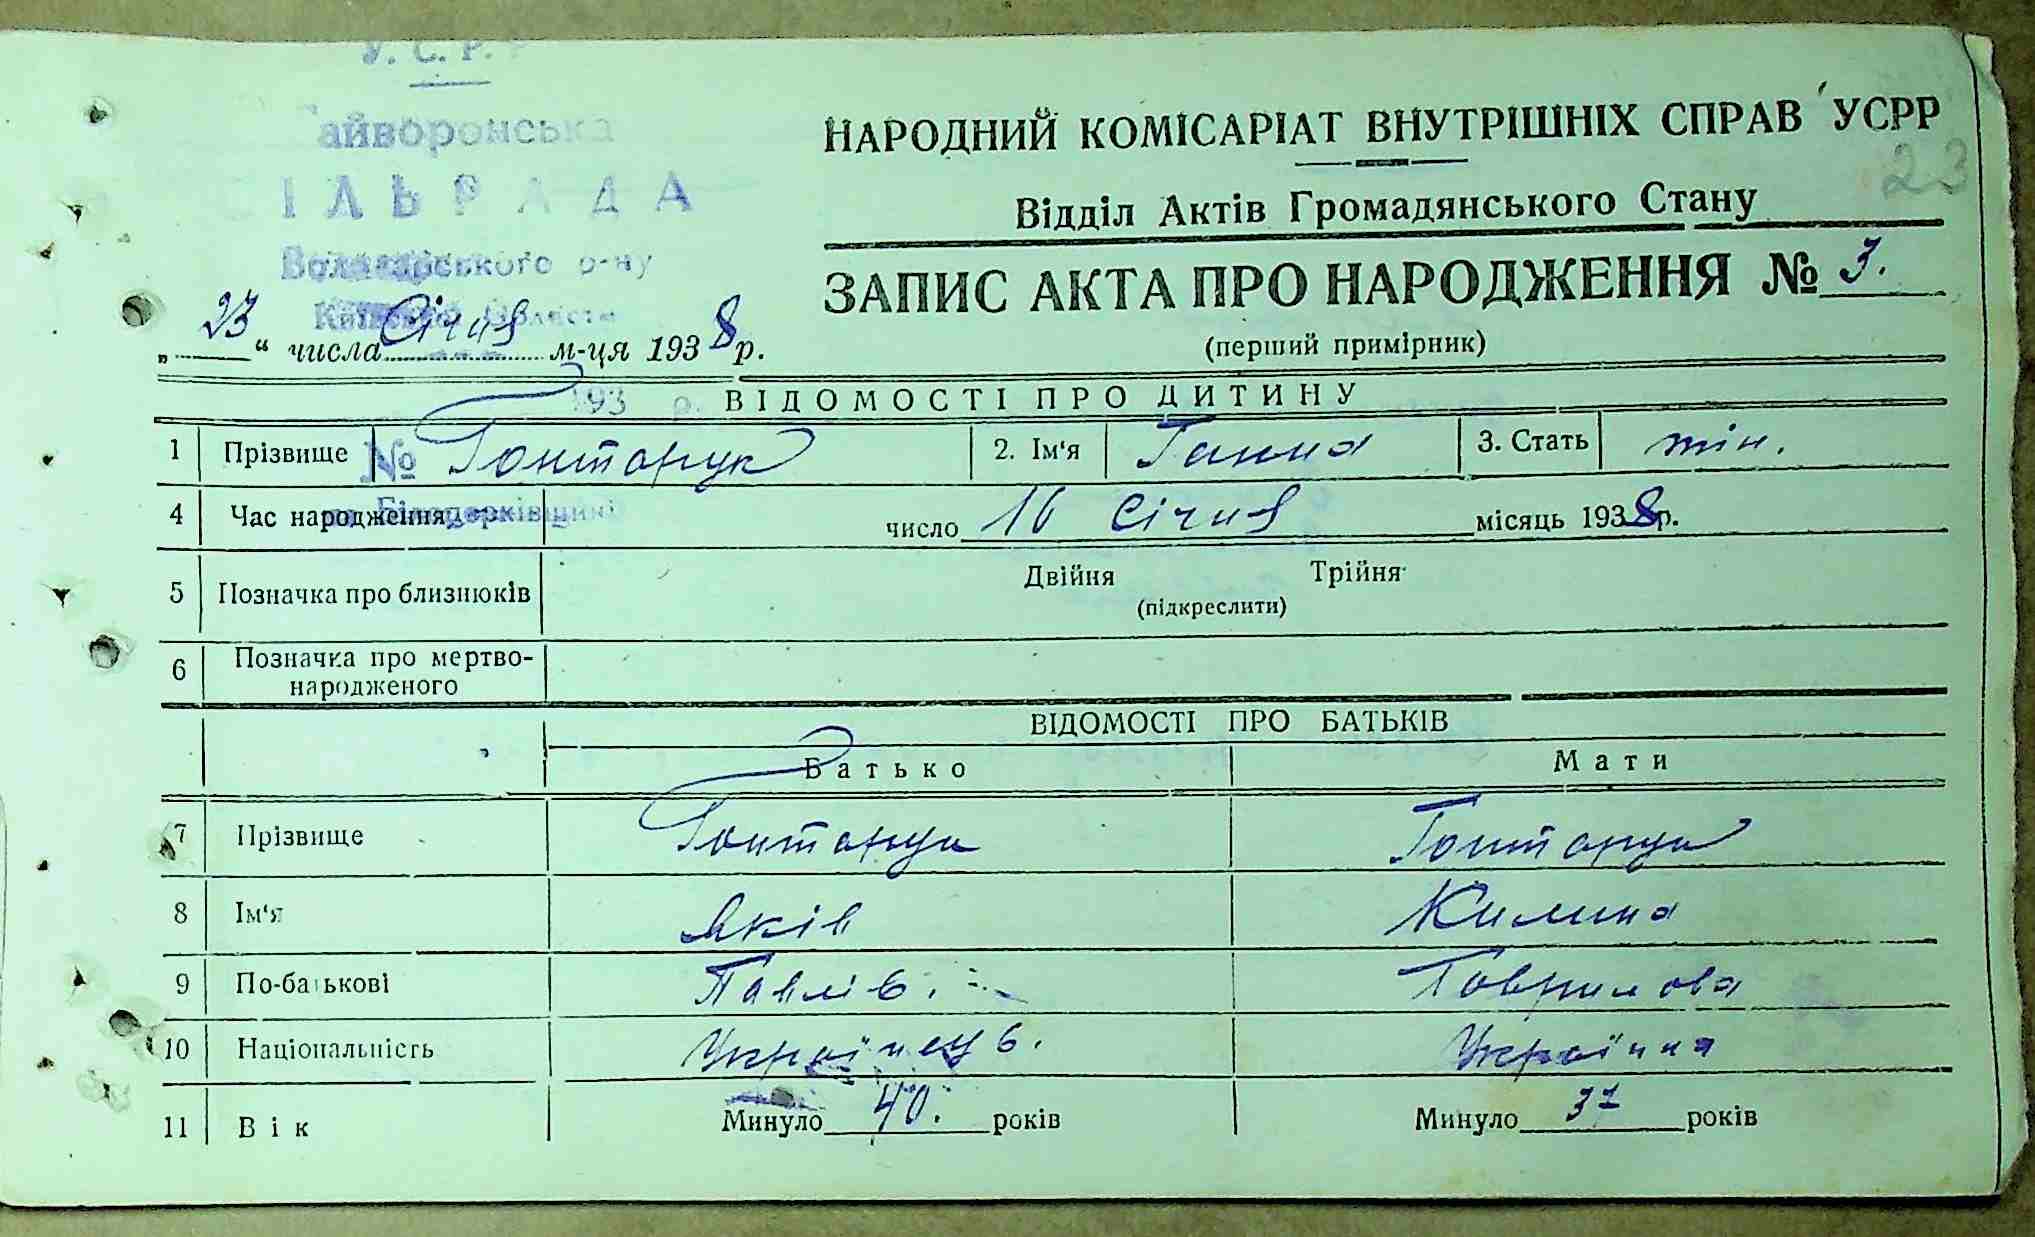 У. С. Р. Р.
Гайворонська
СІЛЬРАДА
Володарського р-ну
Київської Області
НАРОДНИЙ КОМІСАРІАТ ВНУТРІШНІХ СПРАВ УСРР
23
Відділ Актів Громадянського Стану
ЗАПИС АКТА ПРО НАРОДЖЕННЯ № 3.
(перший примірник)
„23“ числа Січня м-ця 1938 р.
193 р.
ВІДОМОСТІ ПРО ДИТИНУ
1 Прізвище № Гонтарук 2. Ім‘я Ганна 3. Стать жін.
4 Час народження число 16 Січня місяць 1938 р.
на Білоцерківщині
5 Позначка про близнюків Двійня Трійня
(підкреслити)
6 Позначка про мертво-
народженого
ВІДОМОСТІ ПРО БАТЬКІВ
Батько Мати
7 Прізвище Гонтарук Гонтарук
8 Ім‘я Яків Килина
9 По-батькові Павлів. Говрилова
10 Національність Українець. Українка
11 Вік Минуло 40. років Минуло 37 років